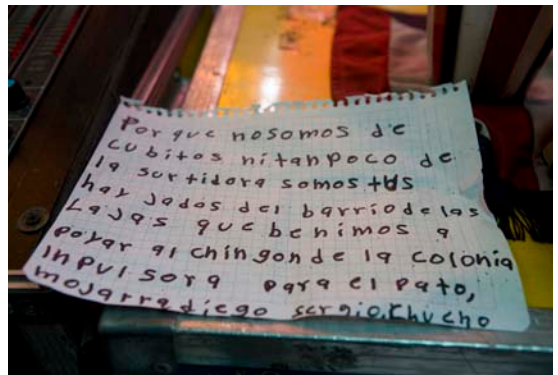 Por que nosomos de
cubitos nitanpoco de
la surtidora somos tus
hay jados del barrio de las
Lajas que benimos a
poyar al chingon de la colonia
inpulsora para el pato,
mojarra diego sergio, chucho